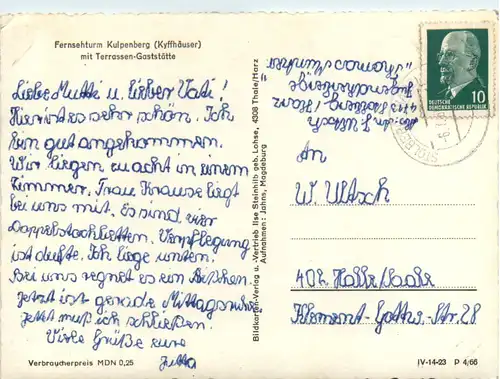 Fernsehturm Kulpenberg (Kyffhäuser)
mit Terrassen-Gaststätte
Liebe Mutti u. lieber Vati!
Hier ist es sehr schön. Ich
bin gut angekommen.
Wir liegen zu acht in einem
Zimmer. Frau Krause liegt
bei uns mit. Es sind vier
Doppelstockbetten. Verpflegung
ist dufte. Ich liege unten.
Bei uns regnet es ein bißchen.
Jetzt ist gerade Mittagsruhe,
Jetzt muß ich schließen.
Viele Grüße eure
Jutta
Verbraucherpreis MDN 0,25
Bildkarten-Verlag u. -Vertrieb Ilse Steinhilb geb. Lohse, 4308 Thale/Harz
Aufnahmen: Jahns, Magdeburg
Jugendherberge
"Thomas Müntzer"
DEUTSCHE
DEMOKRATISCHE REPUBLIK
10
An
W. Utsch
402 Halle/Saale
Klement-Gottw.-Str. 28
IV-14-23 P 4/66